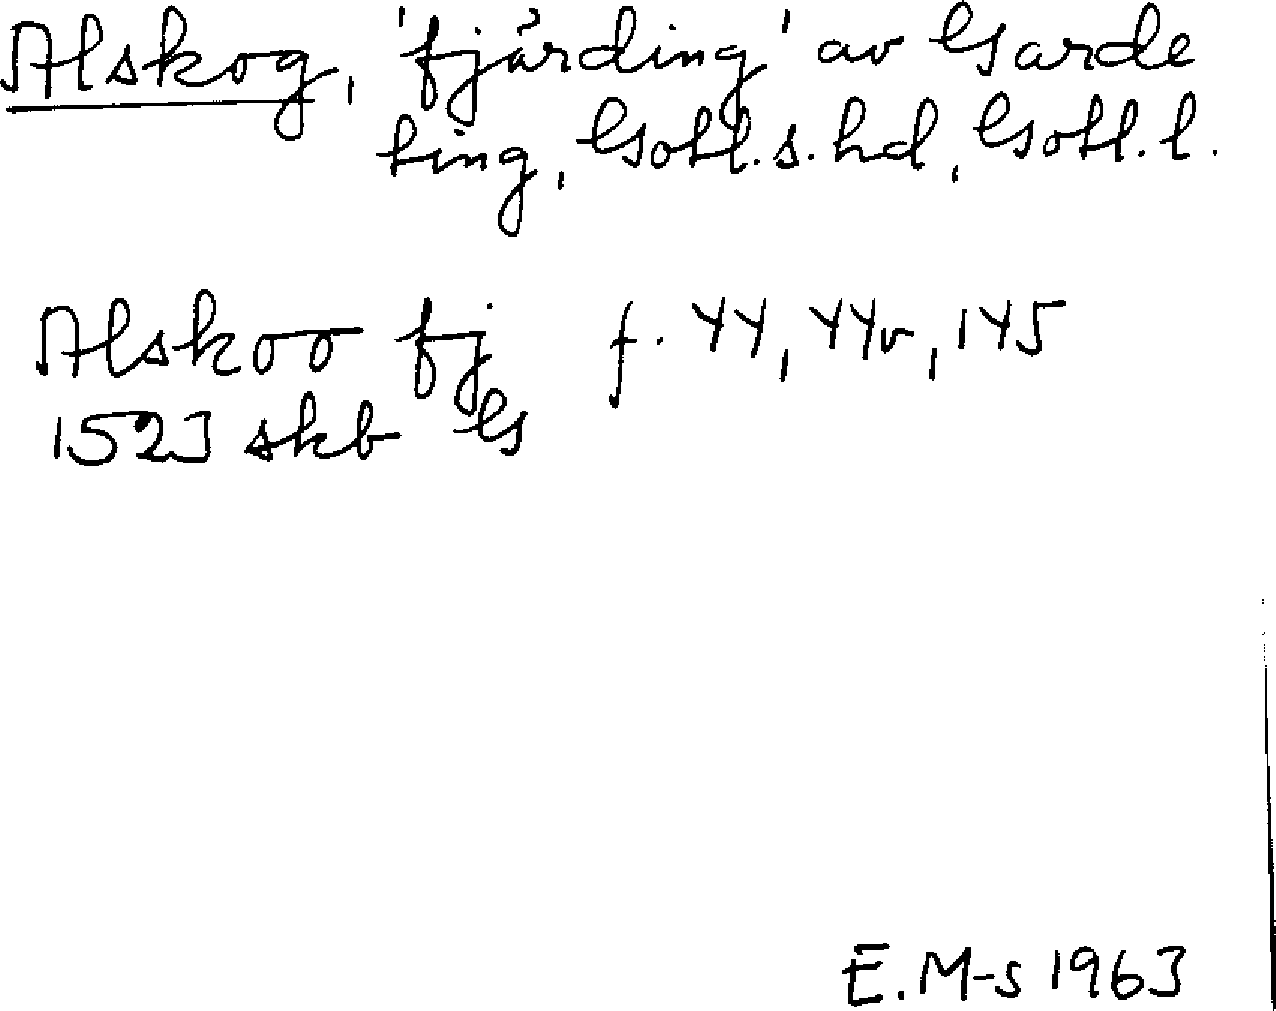 Alskog, 'fjärding' av Garde
ting, Gotl. s. hd, Gotl. l.
Alskoo fj f. 44, 44v, 145
1523 skb G
E. M-s 1963